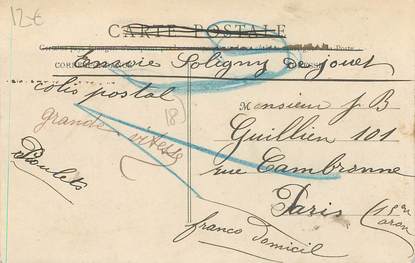 12€
CARTE POSTALE
Envoie Soligny de jouet
colis postal
18
grande vitesse
Poulets
Monsieur J B
Guillien 101
rue Cambronne
Paris (15 en
arron
franco domicil